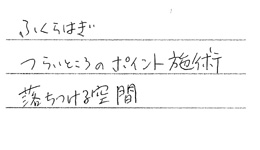 ふくらはぎ
つらいところのポイント施術
落ちつける空間